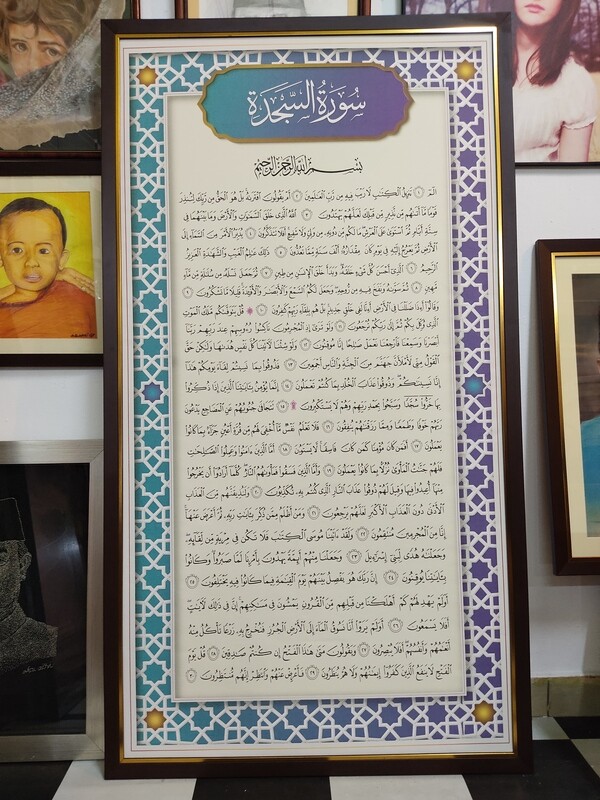 سُورَةُ السَّجْدَة
بِسْمِ ٱللَّهِ ٱلرَّحْمَٰنِ ٱلرَّحِيمِ
الٓمٓ ١ تَنزِيلُ ٱلْكِتَٰبِ لَا رَيْبَ فِيهِ مِن رَّبِّ ٱلْعَٰلَمِينَ ٢ أَمْ يَقُولُونَ ٱفْتَرَىٰهُ بَلْ هُوَ ٱلْحَقُّ مِن رَّبِّكَ لِتُنذِرَ
قَوْمًا مَّآ أَتَىٰهُم مِّن نَّذِيرٍ مِّن قَبْلِكَ لَعَلَّهُمْ يَهْتَدُونَ ٣ ٱللَّهُ ٱلَّذِى خَلَقَ ٱلسَّمَٰوَٰتِ وَٱلْأَرْضَ وَمَا بَيْنَهُمَا فِى
سِتَّةِ أَيَّامٍ ثُمَّ ٱسْتَوَىٰ عَلَى ٱلْعَرْشِ مَا لَكُم مِّن دُونِهِۦ مِن وَلِىٍّ وَلَا شَفِيعٍ أَفَلَا تَتَذَكَّرُونَ ٤ يُدَبِّرُ ٱلْأَمْرَ مِنَ ٱلسَّمَآءِ إِلَى
ٱلْأَرْضِ ثُمَّ يَعْرُجُ إِلَيْهِ فِى يَوْمٍ كَانَ مِقْدَارُهُۥٓ أَلْفَ سَنَةٍ مِّمَّا تَعُدُّونَ ٥ ذَٰلِكَ عَٰلِمُ ٱلْغَيْبِ وَٱلشَّهَٰدَةِ ٱلْعَزِيزُ
ٱلرَّحِيمُ ٦ ٱلَّذِىٓ أَحْسَنَ كُلَّ شَىْءٍ خَلَقَهُۥ وَبَدَأَ خَلْقَ ٱلْإِنسَٰنِ مِن طِينٍ ٧ ثُمَّ جَعَلَ نَسْلَهُۥ مِن سُلَٰلَةٍ مِّن مَّآءٍ
مَّهِينٍ ٨ ثُمَّ سَوَّىٰهُ وَنَفَخَ فِيهِ مِن رُّوحِهِۦ وَجَعَلَ لَكُمُ ٱلسَّمْعَ وَٱلْأَبْصَٰرَ وَٱلْأَفْـِٔدَةَ قَلِيلًا مَّا تَشْكُرُونَ ٩
وَقَالُوٓا۟ أَءِذَا ضَلَلْنَا فِى ٱلْأَرْضِ أَءِنَّا لَفِى خَلْقٍ جَدِيدٍۭ بَلْ هُم بِلِقَآءِ رَبِّهِمْ كَٰفِرُونَ ١٠ ۞ قُلْ يَتَوَفَّىٰكُم مَّلَكُ ٱلْمَوْتِ
ٱلَّذِى وُكِّلَ بِكُمْ ثُمَّ إِلَىٰ رَبِّكُمْ تُرْجَعُونَ ١١ وَلَوْ تَرَىٰٓ إِذِ ٱلْمُجْرِمُونَ نَاكِسُوا۟ رُءُوسِهِمْ عِندَ رَبِّهِمْ رَبَّنَآ
أَبْصَرْنَا وَسَمِعْنَا فَٱرْجِعْنَا نَعْمَلْ صَٰلِحًا إِنَّا مُوقِنُونَ ١٢ وَلَوْ شِئْنَا لَـَٔاتَيْنَا كُلَّ نَفْسٍ هُدَىٰهَا وَلَٰكِنْ حَقَّ
ٱلْقَوْلُ مِنِّى لَأَمْلَأَنَّ جَهَنَّمَ مِنَ ٱلْجِنَّةِ وَٱلنَّاسِ أَجْمَعِينَ ١٣ فَذُوقُوا۟ بِمَا نَسِيتُمْ لِقَآءَ يَوْمِكُمْ هَٰذَآ
إِنَّا نَسِينَٰكُمْ وَذُوقُوا۟ عَذَابَ ٱلْخُلْدِ بِمَا كُنتُمْ تَعْمَلُونَ ١٤ إِنَّمَا يُؤْمِنُ بِـَٔايَٰتِنَا ٱلَّذِينَ إِذَا ذُكِّرُوا۟
بِهَا خَرُّوا۟ سُجَّدًا وَسَبَّحُوا۟ بِحَمْدِ رَبِّهِمْ وَهُمْ لَا يَسْتَكْبِرُونَ ۩ ١٥ تَتَجَافَىٰ جُنُوبُهُمْ عَنِ ٱلْمَضَاجِعِ يَدْعُونَ
رَبَّهُمْ خَوْفًا وَطَمَعًا وَمِمَّا رَزَقْنَٰهُمْ يُنفِقُونَ ١٦ فَلَا تَعْلَمُ نَفْسٌ مَّآ أُخْفِىَ لَهُم مِّن قُرَّةِ أَعْيُنٍ جَزَآءًۢ بِمَا كَانُوا۟
يَعْمَلُونَ ١٧ أَفَمَن كَانَ مُؤْمِنًا كَمَن كَانَ فَاسِقًا لَّا يَسْتَوُۥنَ ١٨ أَمَّا ٱلَّذِينَ ءَامَنُوا۟ وَعَمِلُوا۟ ٱلصَّٰلِحَٰتِ
فَلَهُمْ جَنَّٰتُ ٱلْمَأْوَىٰ نُزُلًۢا بِمَا كَانُوا۟ يَعْمَلُونَ ١٩ وَأَمَّا ٱلَّذِينَ فَسَقُوا۟ فَمَأْوَىٰهُمُ ٱلنَّارُ كُلَّمَآ أَرَادُوٓا۟ أَن يَخْرُجُوا۟
مِنْهَآ أُعِيدُوا۟ فِيهَا وَقِيلَ لَهُمْ ذُوقُوا۟ عَذَابَ ٱلنَّارِ ٱلَّذِى كُنتُم بِهِۦ تُكَذِّبُونَ ٢٠ وَلَنُذِيقَنَّهُم مِّنَ ٱلْعَذَابِ
ٱلْأَدْنَىٰ دُونَ ٱلْعَذَابِ ٱلْأَكْبَرِ لَعَلَّهُمْ يَرْجِعُونَ ٢١ وَمَنْ أَظْلَمُ مِمَّن ذُكِّرَ بِـَٔايَٰتِ رَبِّهِۦ ثُمَّ أَعْرَضَ عَنْهَآ
إِنَّا مِنَ ٱلْمُجْرِمِينَ مُنتَقِمُونَ ٢٢ وَلَقَدْ ءَاتَيْنَا مُوسَى ٱلْكِتَٰبَ فَلَا تَكُن فِى مِرْيَةٍ مِّن لِّقَآئِهِۦ
وَجَعَلْنَٰهُ هُدًى لِّبَنِىٓ إِسْرَٰٓءِيلَ ٢٣ وَجَعَلْنَا مِنْهُمْ أَئِمَّةً يَهْدُونَ بِأَمْرِنَا لَمَّا صَبَرُوا۟ وَكَانُوا۟
بِـَٔايَٰتِنَا يُوقِنُونَ ٢٤ إِنَّ رَبَّكَ هُوَ يَفْصِلُ بَيْنَهُمْ يَوْمَ ٱلْقِيَٰمَةِ فِيمَا كَانُوا۟ فِيهِ يَخْتَلِفُونَ ٢٥
أَوَلَمْ يَهْدِ لَهُمْ كَمْ أَهْلَكْنَا مِن قَبْلِهِم مِّنَ ٱلْقُرُونِ يَمْشُونَ فِى مَسَٰكِنِهِمْ إِنَّ فِى ذَٰلِكَ لَـَٔايَٰتٍ
أَفَلَا يَسْمَعُونَ ٢٦ أَوَلَمْ يَرَوْا۟ أَنَّا نَسُوقُ ٱلْمَآءَ إِلَى ٱلْأَرْضِ ٱلْجُرُزِ فَنُخْرِجُ بِهِۦ زَرْعًا تَأْكُلُ مِنْهُ
أَنْعَٰمُهُمْ وَأَنفُسُهُمْ أَفَلَا يُبْصِرُونَ ٢٧ وَيَقُولُونَ مَتَىٰ هَٰذَا ٱلْفَتْحُ إِن كُنتُمْ صَٰدِقِينَ ٢٨ قُلْ يَوْمَ
ٱلْفَتْحِ لَا يَنفَعُ ٱلَّذِينَ كَفَرُوٓا۟ إِيمَٰنُهُمْ وَلَا هُمْ يُنظَرُونَ ٢٩ فَأَعْرِضْ عَنْهُمْ وَٱنتَظِرْ إِنَّهُم مُّنتَظِرُونَ ٣٠